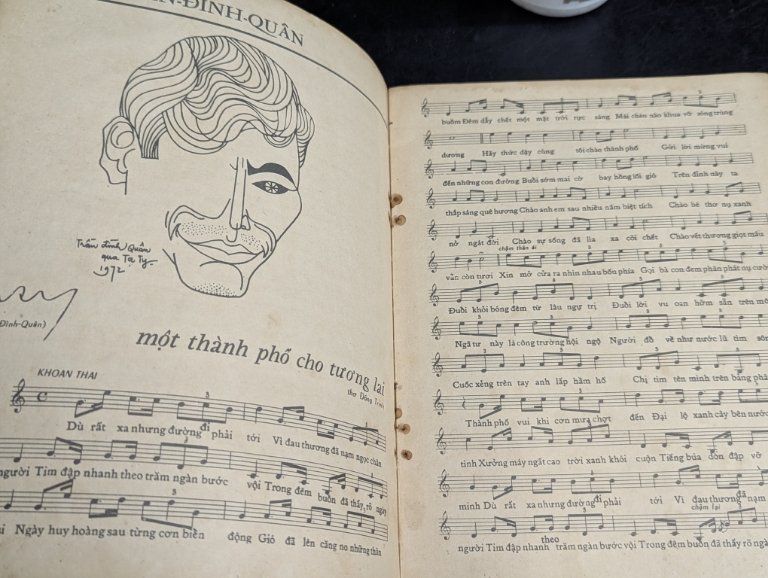 ĐÌNH-QUÂN
Trần đình Quân
qua Tạ Tỵ
1972
Đình-Quân)
một thành phố cho tương lai
thơ Đông Trình
KHOAN THAI
Dù rất xa nhưng đường đi phải tới Vì đau thương đã nạm ngọc chân
người Tim đập nhanh theo trăm ngàn bước vội Trong đêm buồn đã thấy rõ ngày
Ngày huy hoàng sau từng cơn biển động Gió đã lên căng no những thân
buồm Đêm dẫy chết một mặt trời rực sáng Mái chèo nào khua vỡ sóng trùng
dương Hãy thức dậy cùng tôi chào thành phố Gửi lời mừng vui
đến những con đường Buổi sớm mai cờ bay hồng lối gió Trên đỉnh này ta
thắp sáng quê hương Chào anh em sau nhiều năm biệt tích Chào bé thơ nụ xanh
nở ngát đời Chào sự sống đã lìa xa cõi chết Chào vết thương giọt máu
chậm thản đi
vẫn còn tươi Xin mở cửa ra nhìn nhau bốn phía Gọi bà con đem phân phát nụ cười
Đuổi khỏi bóng đêm từ lâu ngự trị Đuổi lời vu oan hờm sẵn trên mô
Ngã tư này là công trường hội ngộ Người đổ về như nước lũ tìm sông
Cuốc xẻng trên tay anh lấp hầm hố Chị tìm tên mình trên bảng phấn
Thành phố vui khi cơn mưa chợt đến Đại lộ xanh cây bên nước
tinh Xưởng máy ngất cao trời xanh khói cuộn Tiếng búa dồn đập vỡ
minh Dù rất xa nhưng đường đi phải tới Vì đau thương đã nạm
chậm lại
người Tim đập nhanh theo trăm ngàn bước vội Trong đêm buồn đã thấy rõ ngà